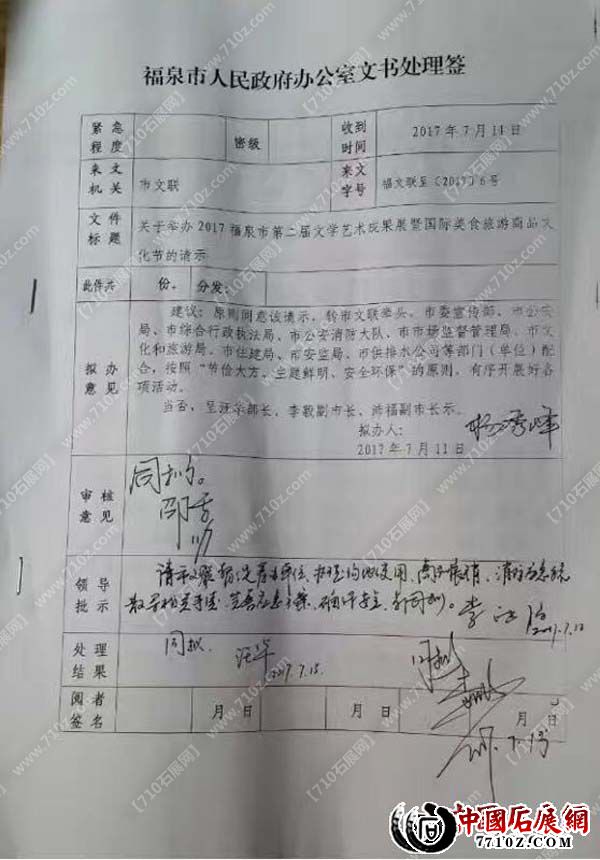 福泉市人民政府办公室文书处理签
紧急程度 密级 收到时间 2017年7月11日
来文机关 市文联 来文字号 福文联呈〔2017〕6号
文件标题 关于举办2017福泉市第二届文学艺术成果展暨国际美食旅游商品文
化节的请示
此件共 份。 分发:
拟办意见
建议：原则同意该请示，转市文联牵头，市委宣传部、市公安
局、市综合行政执法局、市公安消防大队、市市场监督管理局、市文
化和旅游局、市住建局、市安监局、市供排水公司等部门（单位）配
合，按照“节俭大方、主题鲜明、安全环保”的原则，有序开展好各
项活动。
当否，呈汪华部长、李毅副市长、沛福副市长示。
拟办人：杨秀峰
2017年7月11日
审核意见 同拟。
领导批示
2017.7.12
处理结果 同拟. 汪华 2017.7.15 同拟
阅者签名 月 日 月 日 月 日
【710石展网】www.710z.com
中國石展網
7710Z.COM